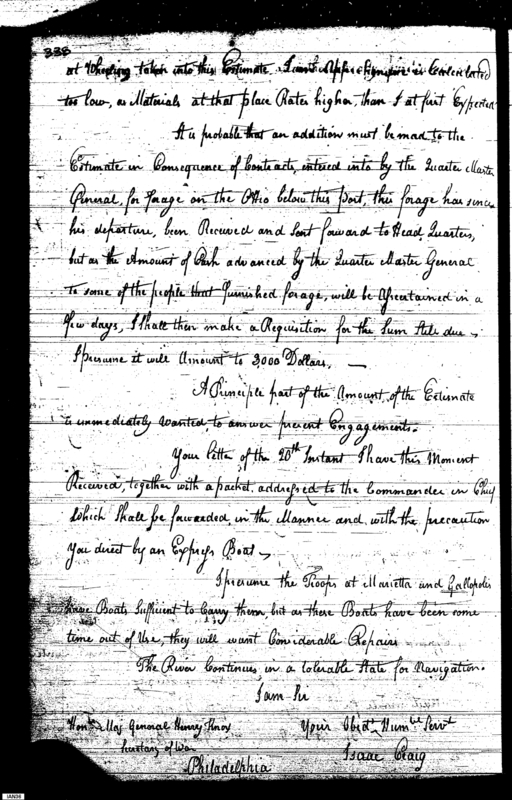 338
at Wheeling taken into this Estimate I am Apprehensive is Calculated
too low, as Materials at that place Rates higher than I at first Expected
It is probable that an addition must be made to the
Estimate in Consequence of Contracts, entered into by the Quarter Master
General, for forage on the Ohio below this post, this forage has since
his departure, been Received and Sent forward to Head Quarters,
but as the Amount of Cash advanced by the Quarter Master General
to some of the people that furnished forage, will be Ascertained in a
few days, I shall then make a Requisition for the Sum Still due,
I presume it will Amount to 3000 Dollars,
A Principle part of the Amount of the Estimate
is immediately wanted to answer present Engagements.
Your letter of the 20th Instant I have this Moment
Received, together with a packet addressed to the Commander in Chief
which shall be forwarded in the Manner and with the precaution
you direct by an Express Boat,
I presume the Troops at Marietta and Gallopolis
have Boats Sufficient to Carry them, but as these Boats have been some
time out of Use, they will want Considerable Repairs
The River Continues in a tolerable State for Navigation.
I am Sir
Honble Maj General Henry Knox Your Obedt Humble Servt
Secretary of War Isaac Craig
Philadelphia
IAN36